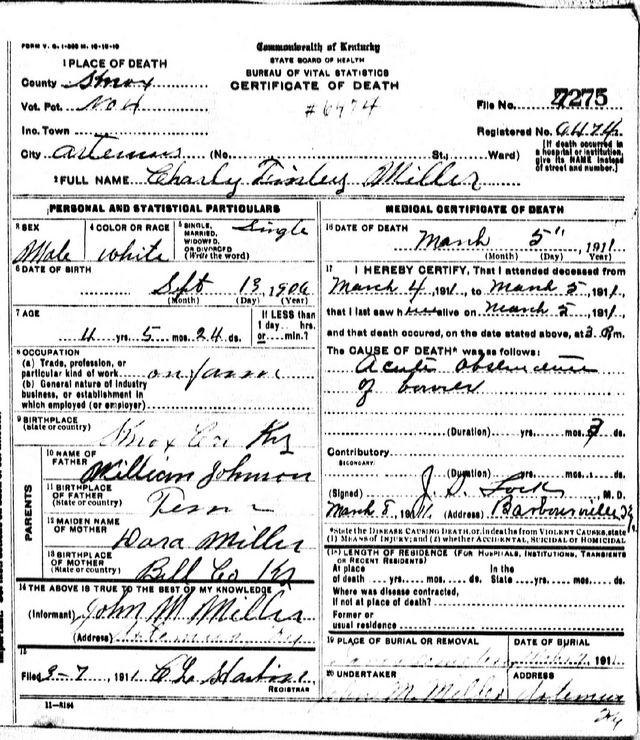 FORM V. S. 1-300 M. 10-15-10
Commonwealth of Kentucky
STATE BOARD OF HEALTH
BUREAU OF VITAL STATISTICS
CERTIFICATE OF DEATH
1 PLACE OF DEATH
County Knox
Vot. Pct. No 4
Inc. Town
City Artemus (No. St.; Ward)
#6474
File No. 7275
Registered No. 6474
[If death occurred in a hospital or institution, give its NAME instead of street and number.]
2 FULL NAME Charly Finley Miller
PERSONAL AND STATISTICAL PARTICULARS
3 SEX
Male
4 COLOR OR RACE
white
5 SINGLE, MARRIED, WIDOWED, OR DIVORCED (Write the word)
Single
6 DATE OF BIRTH
Sept 13, 1906
(Month) (Day) (Year)
7 AGE
4 yrs. 5 mos. 24 ds.
If LESS than 1 day hrs. or min.?
8 OCCUPATION
(a) Trade, profession, or particular kind of work on farm
(b) General nature of industry business, or establishment in which employed (or employer)
9 BIRTHPLACE
(State or country)
Knox Co. Ky
PARENTS
10 NAME OF FATHER
William Johnson
11 BIRTHPLACE OF FATHER
(State or country)
Tenn
12 MAIDEN NAME OF MOTHER
Dara Miller
13 BIRTHPLACE OF MOTHER
(State or country)
Bell Co Ky
14 THE ABOVE IS TRUE TO THE BEST OF MY KNOWLEDGE
(Informant) John M Miller
(Address) Artemus Ky
15
Filed 3-7, 1911
REGISTRAR
11-8184
MEDICAL CERTIFICATE OF DEATH
16 DATE OF DEATH
March 5", 1911
(Month) (Day) (Year)
17 I HEREBY CERTIFY, That I attended deceased from
March 4, 1911, to March 5, 1911,
that I last saw h alive on March 5, 1911,
and that death occured, on the date stated above, at 3 P.m.
The CAUSE OF DEATH* was as follows:
Acute obstruction
of bowels
(Duration) yrs. mos. 3 ds.
Contributory
SECONDARY
(Duration) yrs. mos. ds.
(Signed) J. S. Lock M. D.
March 5, 1911 (Address) Barboursville Ky
*State the DISEASE CAUSING DEATH, or, in deaths from VIOLENT CAUSES, state (1) MEANS OF INJURY; and (2) whether ACCIDENTAL, SUICIDAL OR HOMICIDAL
18 LENGTH OF RESIDENCE (FOR HOSPITALS, INSTITUTIONS, TRANSIENTS OR RECENT RESIDENTS)
At place of death yrs. mos. ds. In the State yrs. mos. ds.
Where was disease contracted,
if not at place of death?
Former or
usual residence
19 PLACE OF BURIAL OR REMOVAL
DATE OF BURIAL
1911
20 UNDERTAKER
John M. Miller
ADDRESS
Artemus
Ky